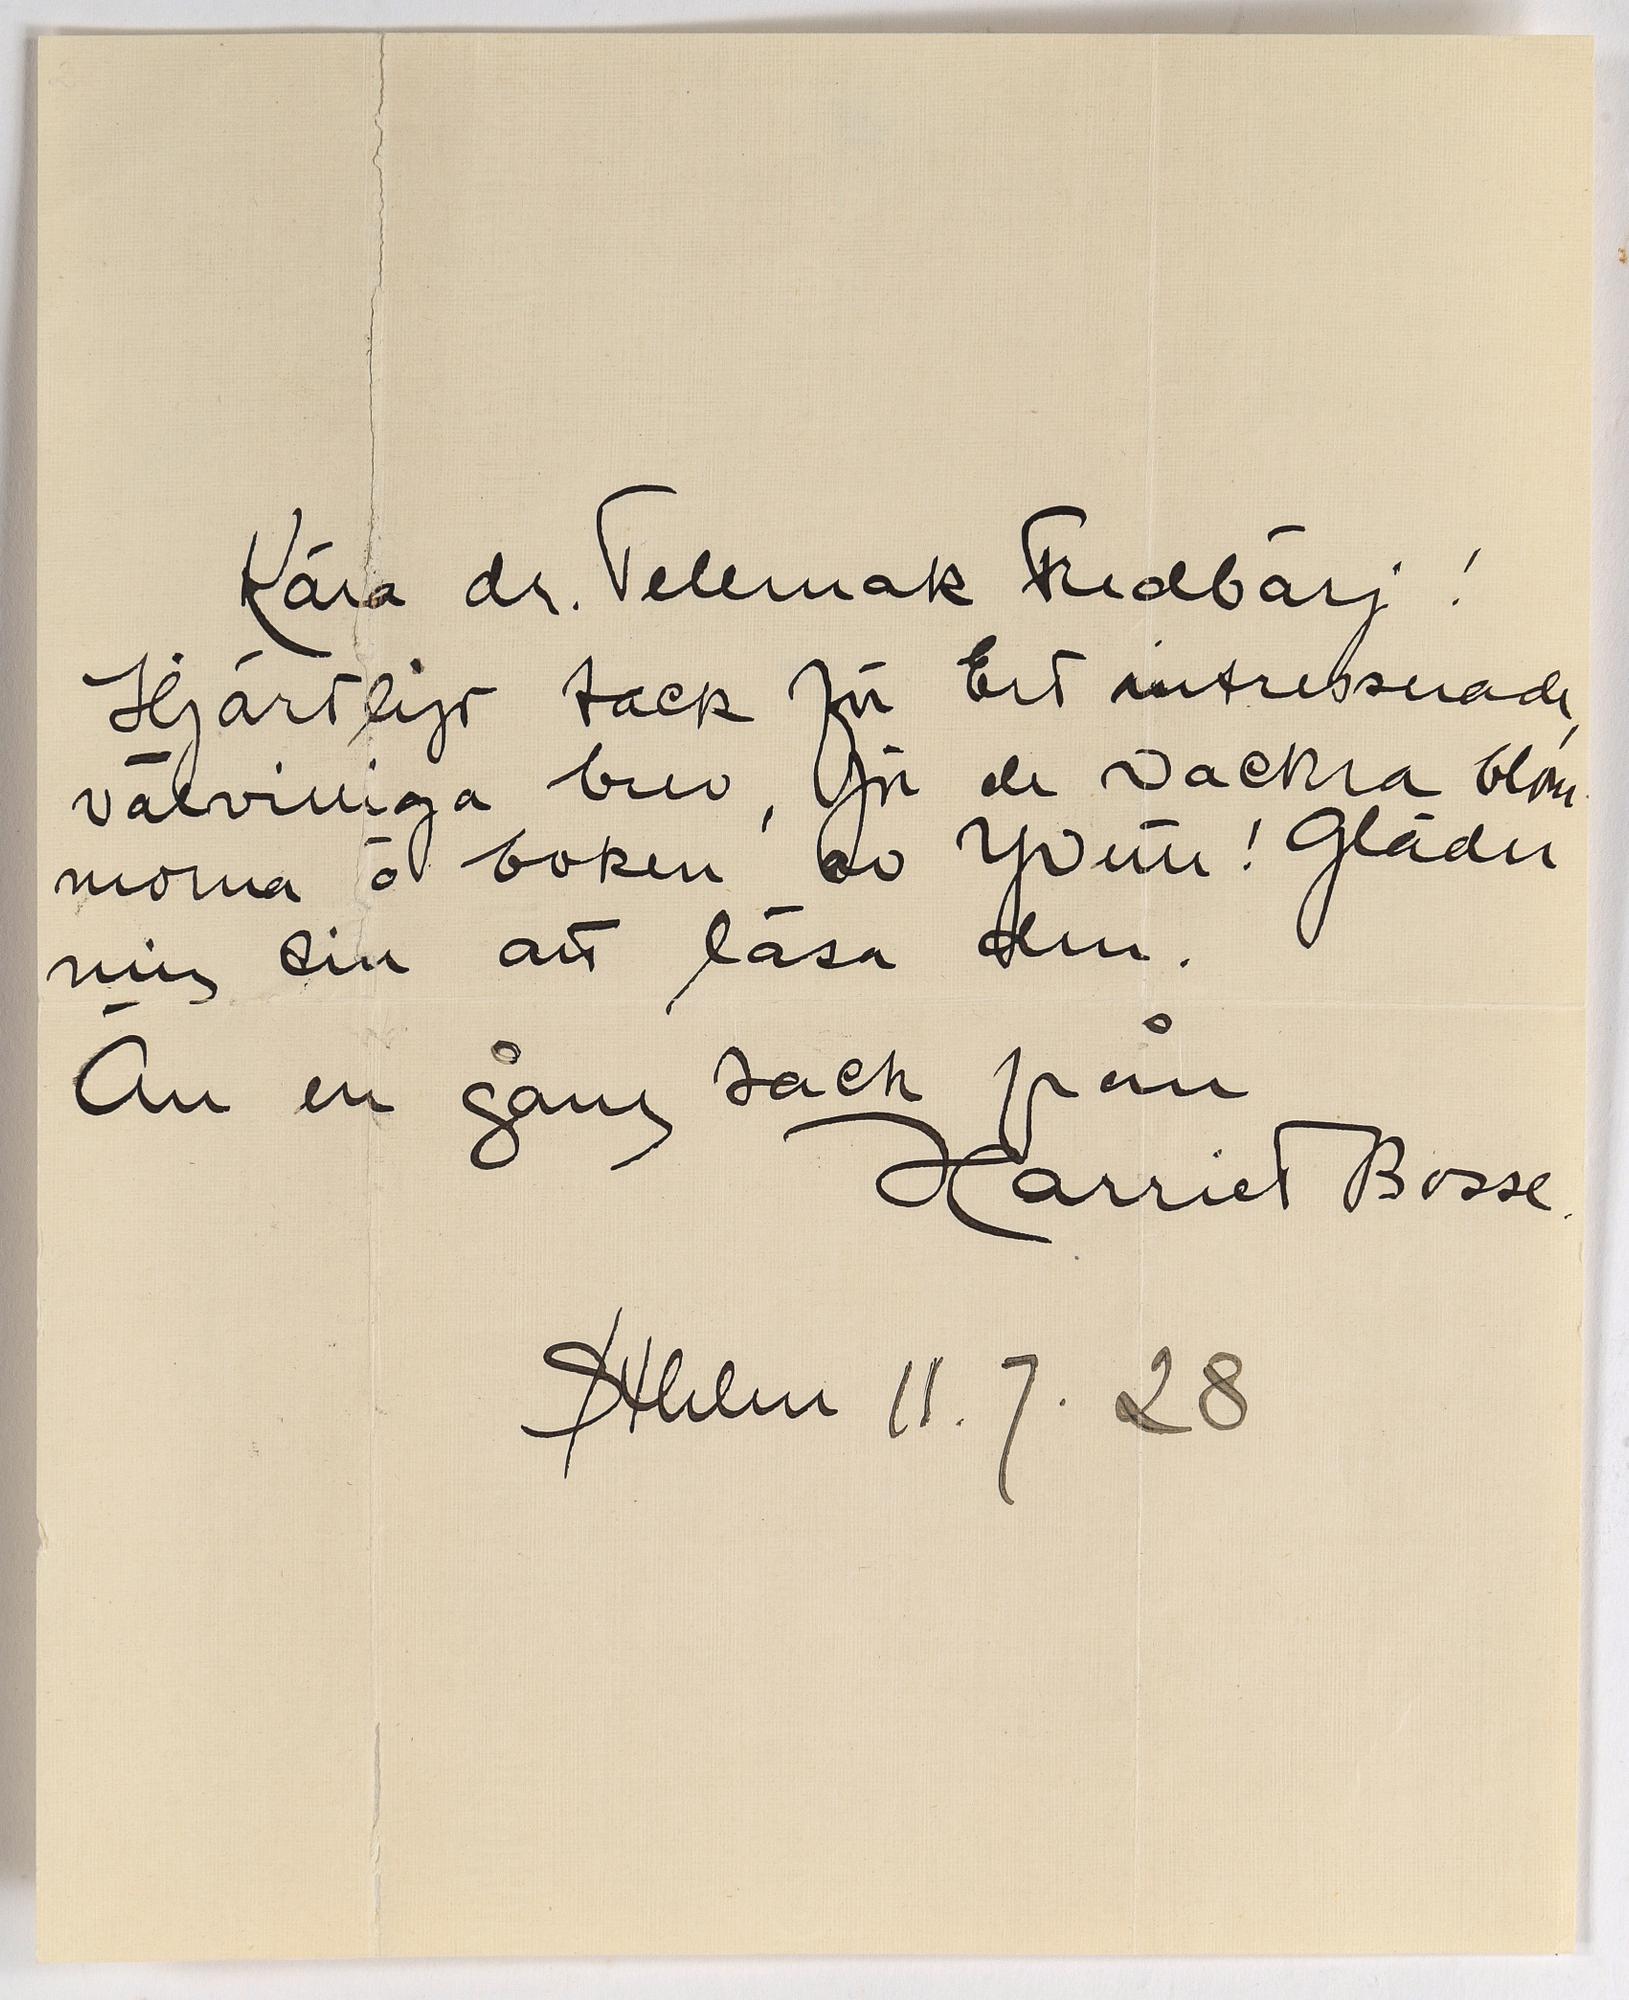 Kära dr. Telemak Fredbärj!
Hjärtligt tack för Ert intresserade,
välvilliga brev, för de vackra blom-
morna å boken av Yvette! Gläder
mig
att läsa den.
Än en gång tack från
Harriet Bosse.
Sthlm 11.7.28